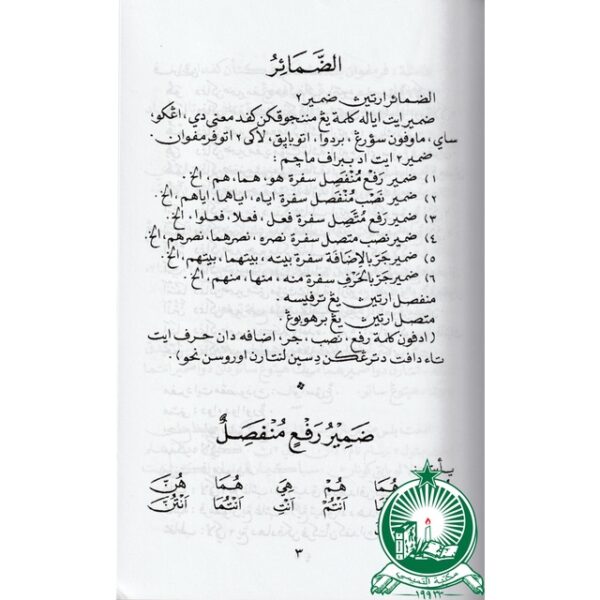 الضَّمَائِرُ
الضمائر ارتيڽ ضمير٢
ضمير ايت اياله كلمة يڠ منججوقكن كفد معنى دي، اڠكو،
ساي، ماوفون سؤرڠ، بردوا، اتو باپق، لاكى٢ اتو فرمفوان.
ضمير٢ ايت اد ببراف ماچم:
١) ضمير رَفْع مُنْفَصِل سفرة هو، هما، هم، الخ.
٢) ضمير نَصْب مُنْفَصِل سفرة اياه، اياهما، اياهم، الخ.
٣) ضمير رَفْع مُتَّصِل سفرة فعل، فعلا، فعلوا، الخ.
٤) ضمير نصب متصل سفرة نصره، نصرهما، نصرهم، الخ.
٥) ضمير جَرّ بالإضَافَة سفرة بيته، بيتهما، بيتهم، الخ.
٦) ضمير جَرّ بالحَرْفِ سفرة منه، منها، منهم، الخ.
منفصل ارتيڽ يڠ ترفيسه.
متصل ارتيڽ يڠ برهوبوڠ.
( ادفون كلمة رفع، نصب، جر، اضافه دان حرف ايت
تاء دافت دترڠكن دسين لنتارن اوروسن نحو).
ضَمِيْرُ رَفْعٍ مُنْفَصِلٌ
هُمَا هُمْ هِيَ هُمَا هُنَّ
اَنْتُمْ اَنْتِ اَنْتُمَا اَنْتُنَّ
٣
مكتبة النديسي
١٩٩٢٣